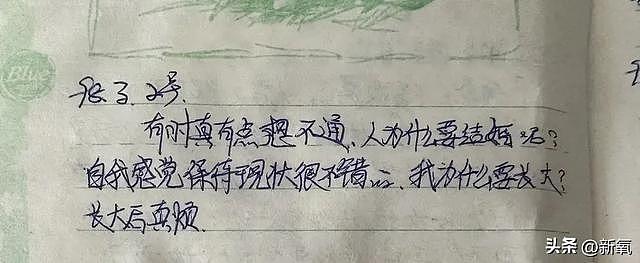 Blue
2号.
有时真有点想不通、人为什么要结婚呢?
自我感觉保持现状很不错…、我为什么要长大?
长大后真烦.
头条 @新氧